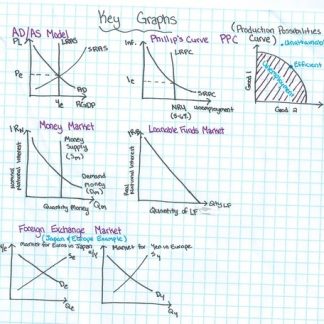 Key Graphs
AD/AS Model
PL
LRAS
SRAS
Pe
AD
Ye
RGDP
Phillip's Curve
Inf.
LRPC
Ie
SRPC
NRU
unemployment
PPC
(Production Possibilities
Curve)
Unattainable
Efficient
Good 1
Good 2
Money Market
Money
Supply
(Sm)
Demand
money
(Dm)
Nominal
Interest
Quantity Money
Qm
Loanable Funds Market
Real
Interest
Quantity of LF
Foreign Exchange Market
(Japan & Europe Example)
Market for Euros in Japan
Se
De
Qe
Market for Yen in Europe
Sy
Dy
Qy